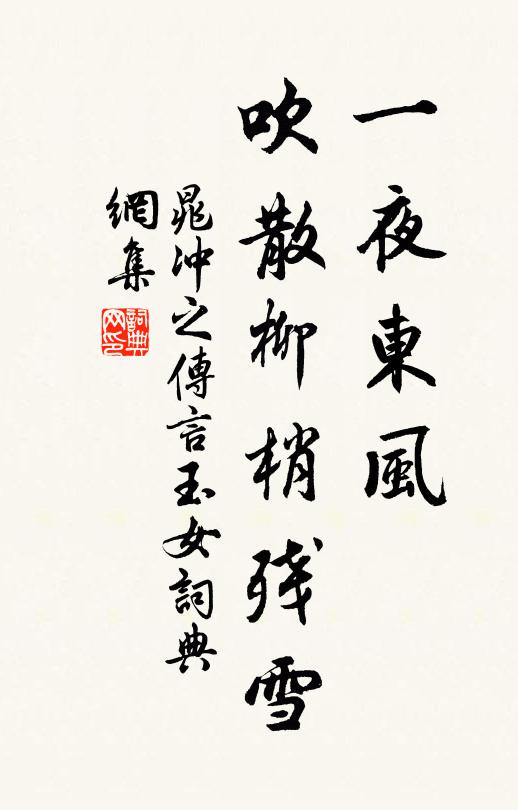 一夜東風
吹散柳梢殘雪
晁冲之傳言玉女詞典
網集
詞典网印